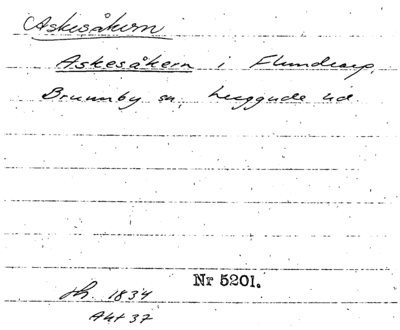 Askesåkern
Askesåkern i Flundrarp,
Brunnby sn, Luggude hd
Nr 5201.
sk. 1834
Akt 37